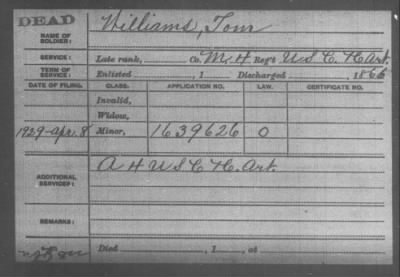 DEAD
NAME OF SOLDIER: Williams, Tom
SERVICE: Late rank, Co. M, H Reg't U S C H Art.
TERM OF SERVICE: Enlisted , 1 Discharged , 1866
DATE OF FILING. CLASS. APPLICATION NO. LAW. CERTIFICATE NO.
Invalid,
Widow,
1929-Apr. 8 Minor, 1639626 O
ADDITIONAL SERVICES: A H U S C H. Art.
REMARKS:
Died , 1 , at